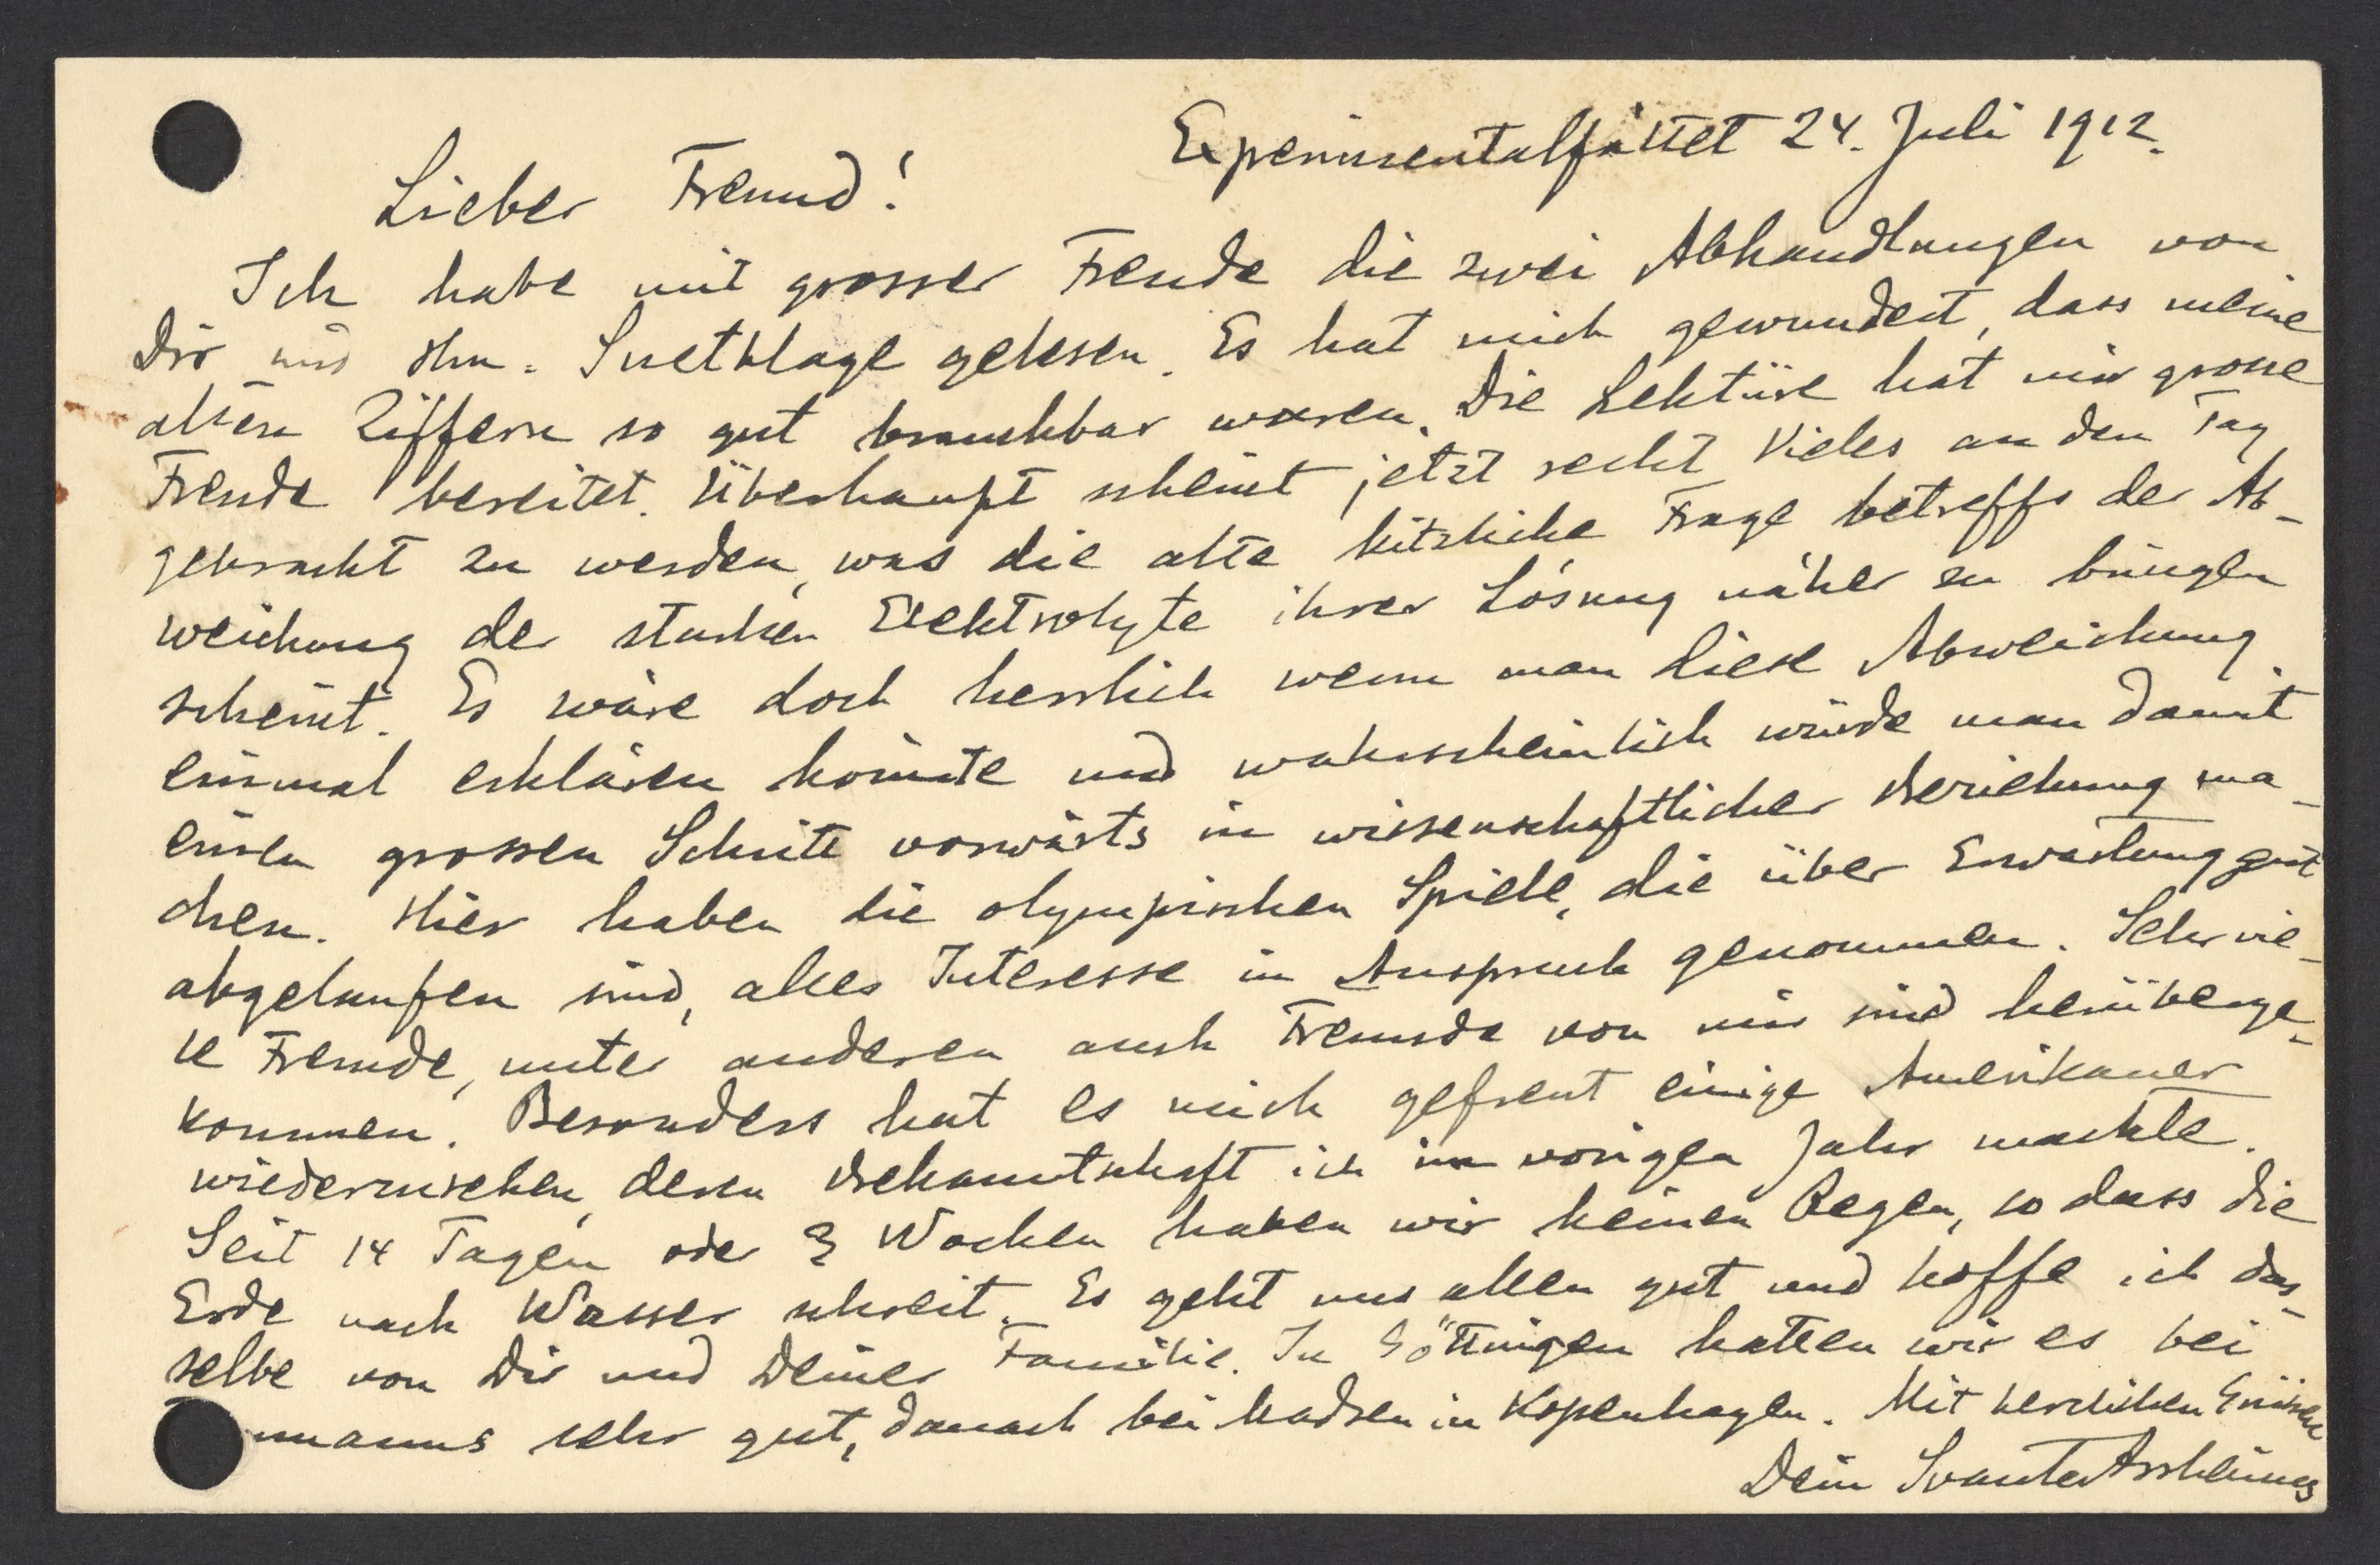 Experimentalfältet 24. Juli 1912.
Lieber Freund!
Ich habe mit grosser Freude die zwei Abhandlungen von
Dir und Hrn. Snethlage gelesen. Es hat mich gewundert, dass meine
alten Ziffern so gut brauchbar waren. Die Lektüre hat mir grosse
Freude bereitet. Überhaupt scheint jetzt recht Vieles an den Tag
gebracht zu werden, was die alte kitzliche Frage betreffs der Ab-
weichung der starken Elektrolyte ihrer Lösung näher zu bringen
scheint. Es wäre doch herrlich wenn man diese Abweichung
einmal erklären könnte und wahrscheinlich würde man damit
einen grossen Schritt vorwärts in wissenschaftlicher Beziehung ma-
chen. Hier haben die olympischen Spiele, die über Erwartung gut
abgelaufen sind, alles Interesse in Anspruch genommen. Sehr vie-
le Fremde, unter anderen auch Freunde von mir sind herüberge-
kommen. Besonders hat es mich gefreut einige Amerikaner
wiederzusehen, deren Bekanntschaft ich im vorigen Jahr machte.
Seit 14 Tagen oder 3 Wochen haben wir keinen Regen, so dass die
Erde nach Wasser schreit. Es geht uns allen gut und hoffe ich das-
selbe von Dir und Deiner Familie. In Göttingen hatten wir es bei
mmanns sehr gut, danach bei Madsen in Kopenhagen. Mit herzlichen Grüssen
Dein Svante Arrhenius